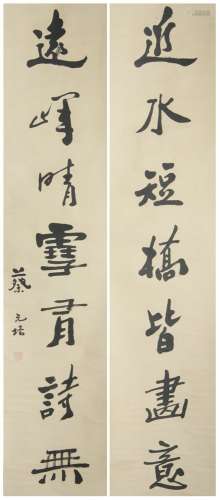 近水短橋皆畫意
遠峰晴雪有詩無
蔡元培